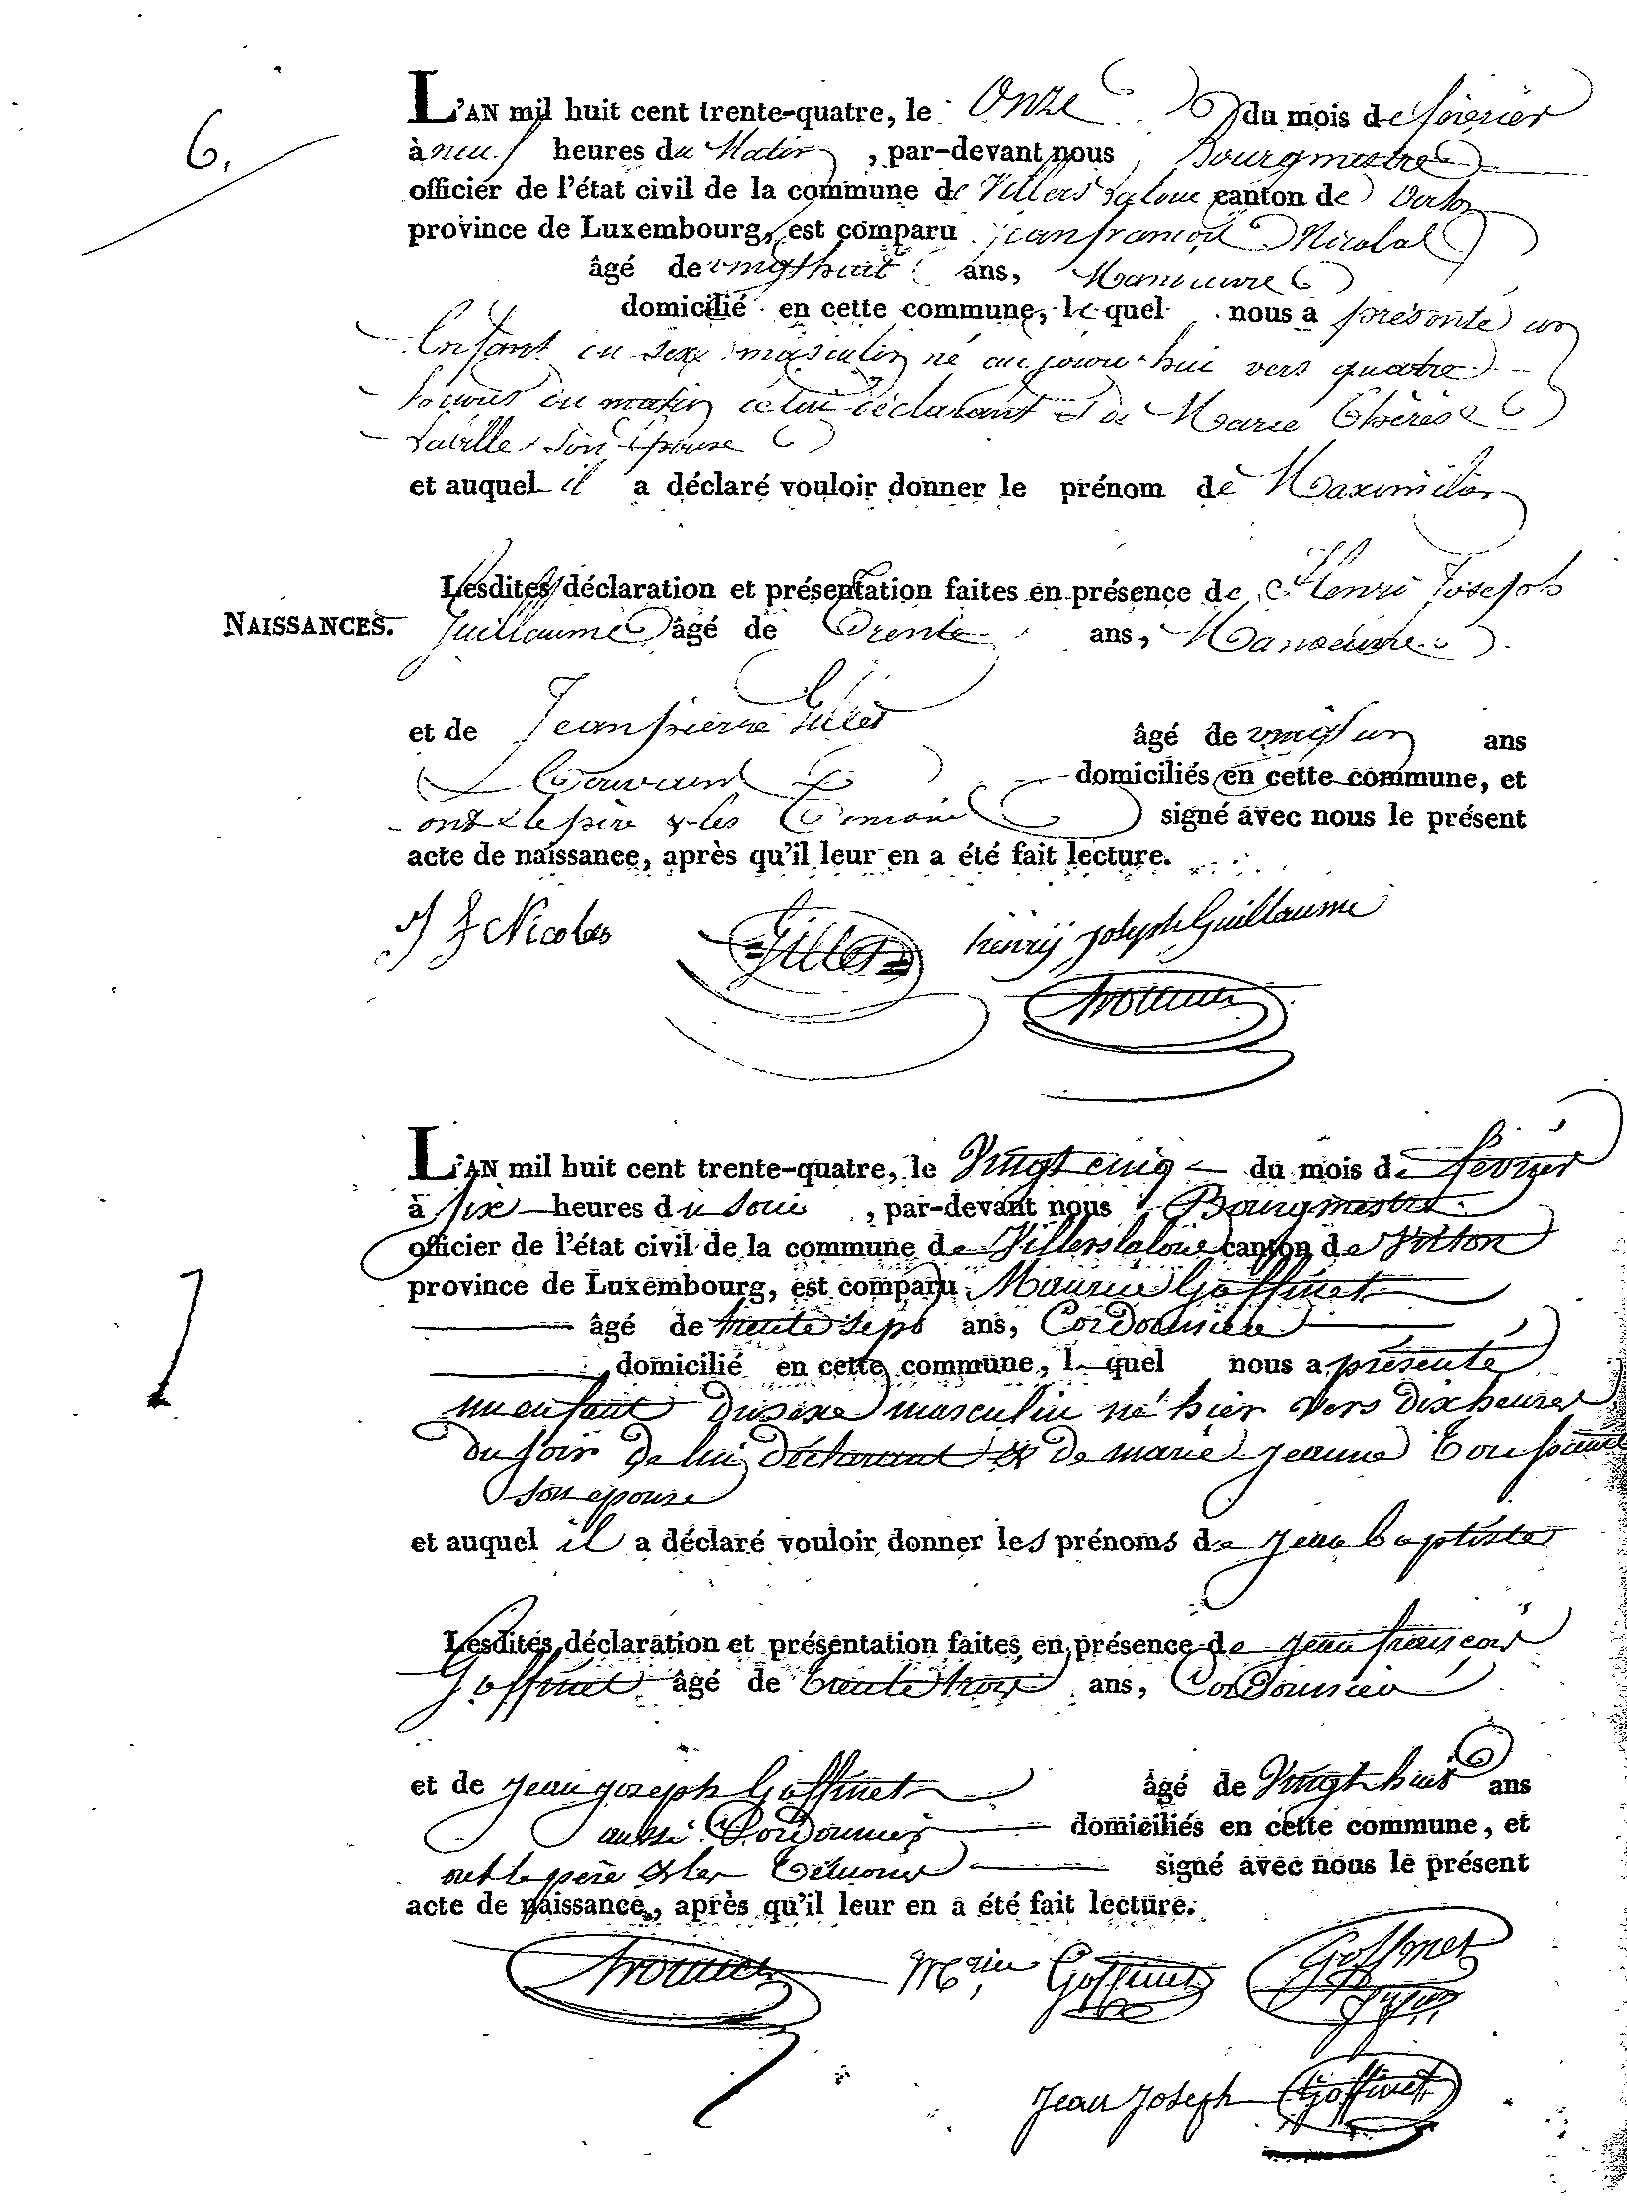 6.
L'AN mil huit cent trente-quatre, le Onze du mois de février
à neuf heures du Matin, par-devant nous Bourgmestre
officier de l'état civil de la commune de Villers Laloue canton de Virton
province de Luxembourg, est comparu jean françois Nicolas
âgé de vingthuit ans, Manoeuvre
domicilié en cette commune, lequel nous a présenté un
Enfant du sexe masculin né aujourd'hui vers quatre
heures du matin de lui déclarant & de Marie Thérèse
Laville son épouse
et auquel il a déclaré vouloir donner le prénom de Maximilien
Lesdites déclaration et présentation faites en présence de Henri Joseph
NAISSANCES.
Guillaume âgé de Trente ans, Manoeuvre
et de Jean pierre Gilles âgé de vingt un ans
domiciliés en cette commune, et
ont le père & les Témoins signé avec nous le présent
acte de naissance, après qu'il leur en a été fait lecture.
J F Nicolas Gilles henry joseph Guillaume
7
L'AN mil huit cent trente-quatre, le Vingt cinq du mois de févrièr
à six heures du soir, par-devant nous Bourgmestre
officier de l'état civil de la commune de Villerslaloue canton de Virton
province de Luxembourg, est comparu Maurice Goffinet
âgé de trente sept ans, Cordonnier
domicilié en cette commune, l quel nous a présenté
un enfant du sexe masculin né hier vers dix heures
du soir de lui déclarant & de marie jeanne
son épouse
et auquel il a déclaré vouloir donner les prénoms de jean baptiste
Lesdites déclaration et présentation faites en présence de jean françois
Goffinet âgé de trente trois ans, Cordonnier
et de jean joseph Goffinet âgé de Vingt huit ans
aussi Cordonnier domiciliés en cette commune, et
ont le père & les Témoins signé avec nous le présent
acte de naissance, après qu'il leur en a été fait lecture.
Mrice Goffinet Goffinet
Jean Joseph Goffinet